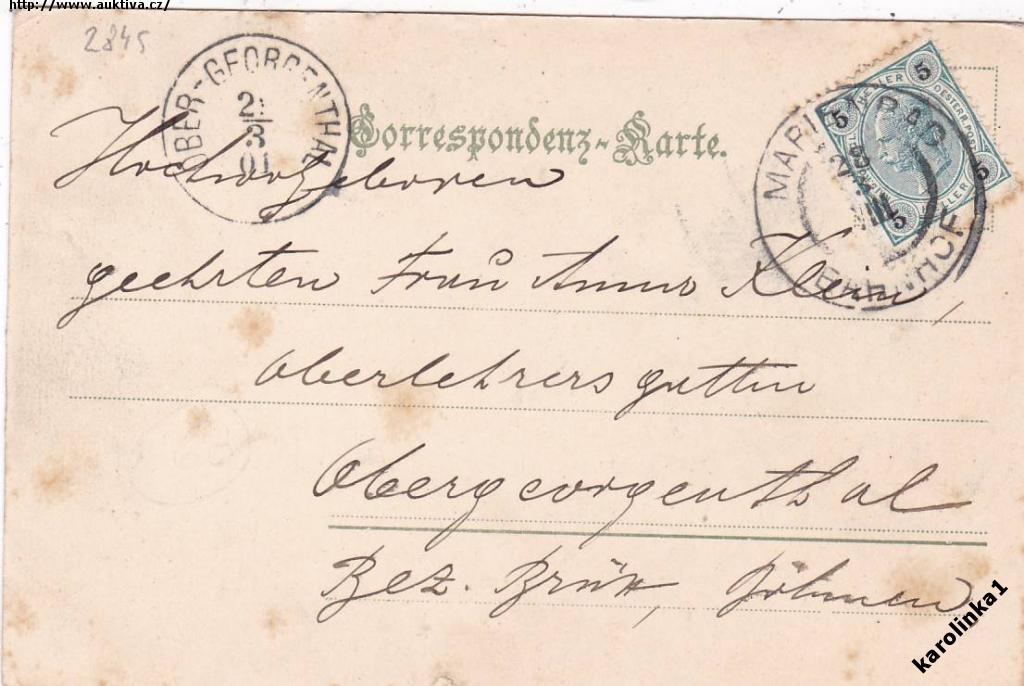 http://www.auktiva.cz/
2845
OBER-GEORGENTHAL
3
01
Correspondenz-Karte.
5 HELLER 5 OESTERR.POST 5 HELLER 5
MARIENBAD
BAHNHOF
Hochwolgeboren
geehrten Frau Anna Klein,
Oberlehrersgattin
Obergeorgenthal
Bez. Brüx, Böhmen
karolinka1